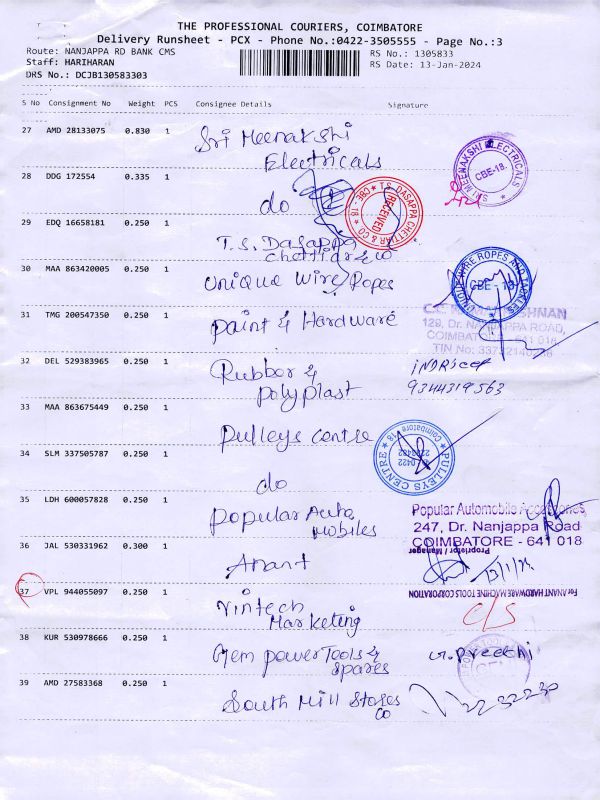 THE PROFESSIONAL COURIERS, COIMBATORE
Delivery Runsheet - PCX - Phone No.:0422-3505555 - Page No.:3
Route: NANJAPPA RD BANK CMS
RS No.: 1305833
Staff: HARIHARAN
RS Date: 13-Jan-2024
DRS No.: DCJB130583303
S No Consignment No Weight PCS Consignee Details Signature
27 AMD 28133075 0.830 1 Sri Meenakshi
Electricals
SRI MEENAKSHI ELECTRICALS
CBE-18.
28 DDG 172554 0.335 1 do
T.S. DASAPPA CHETTIAR & CO
RECEIVED
CBE - 18
29 EDQ 16658181 0.250 1 T.S. Dasappa
Chettiar & co
30 MAA 863420005 0.250 1 Unique Wire Ropes
UNIQUE WIRE ROPES AND TACKLES
CBE - 18
31 TMG 200547350 0.250 1 Paint & Hardware
129, Dr. NANJAPPA ROAD,
32 DEL 529383965 0.250 1 Rubber &
Polyplast
9344319563
33 MAA 863675449 0.250 1 Pulleys Centre
PULLEYS CENTRE
Coimbatore-18
34 SLM 337505787 0.250 1 do
35 LDH 600057828 0.250 1 Popular Auto
Mobiles
Popular Automobile Accessories,
247, Dr. Nanjappa Road
COIMBATORE - 641 018
36 JAL 530331962 0.300 1 Anant
Proprietor / Manager
For ANANT HARDWARE MACHINE TOOLS CORPORATION
37 VPL 944055097 0.250 1 Vintech
Marketing
C/S
38 KUR 530978666 0.250 1 Gem Power Tools &
Spares
Preethi
39 AMD 27583368 0.250 1 South Mill Stores
Co
2232230